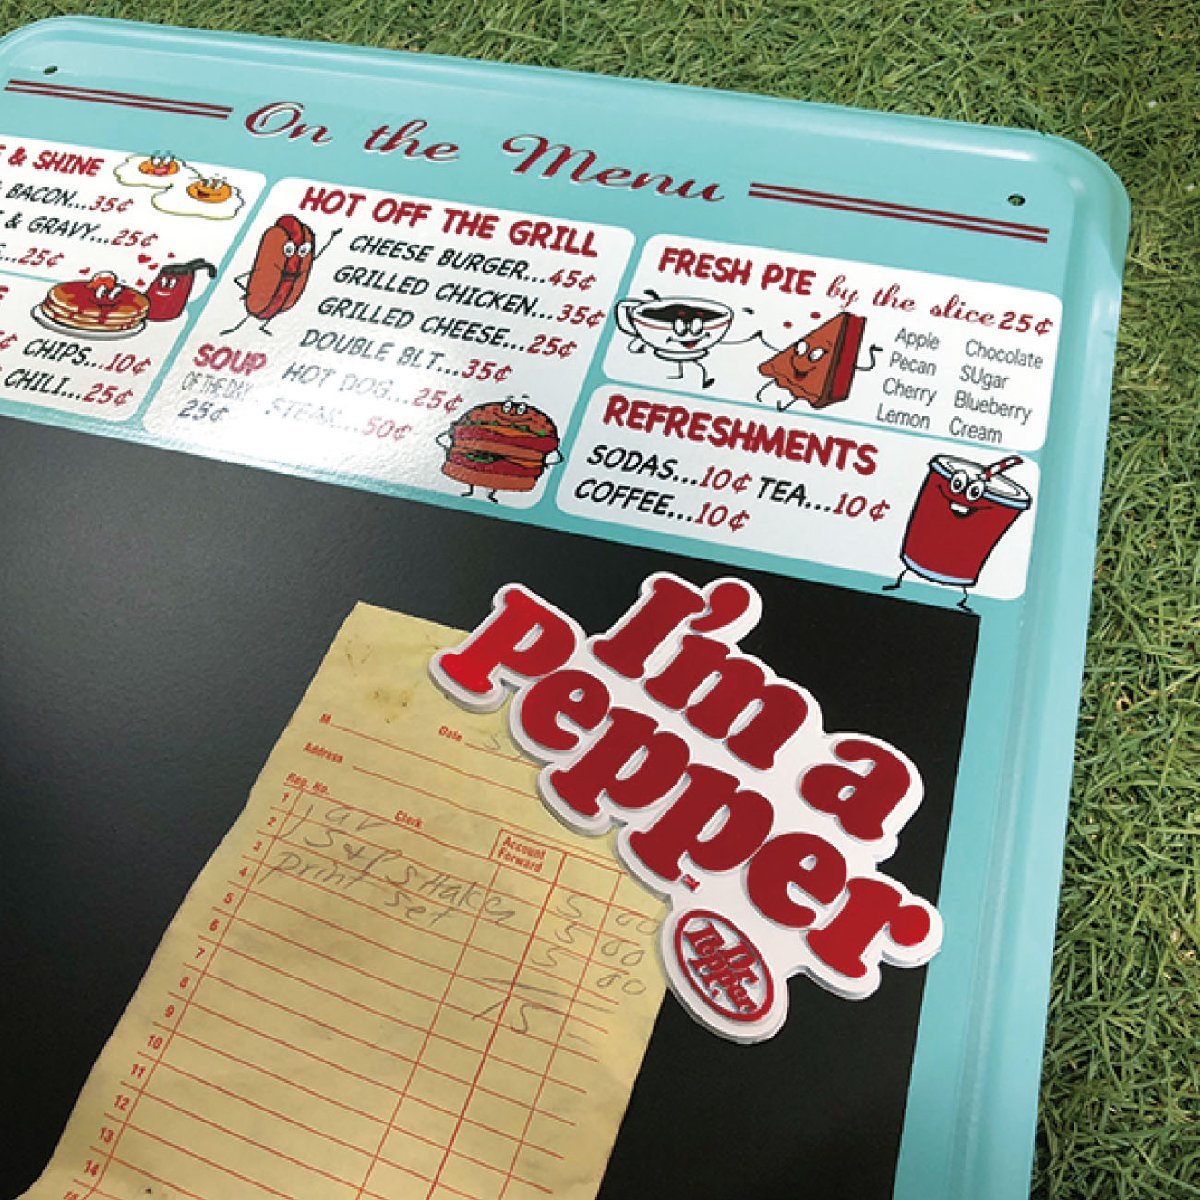 On the Menu
& SHINE
BACON...35¢
& GRAVY...25¢
...25¢
CHIPS...10¢
CHILI...25¢
HOT OFF THE GRILL
CHEESE BURGER...45¢
GRILLED CHICKEN...35¢
GRILLED CHEESE...25¢
DOUBLE BLT...35¢
HOT DOG...25¢
STEAK...50¢
SOUP
OF THE DAY
25¢
FRESH PIE by the slice 25¢
Apple
Pecan
Cherry
Lemon
Chocolate
SUgar
Blueberry
Cream
REFRESHMENTS
SODAS...10¢ TEA...10¢
COFFEE...10¢
I'm a
Pepper
TM
Dr
Pepper
M
Date 5
Address
Reg. No.
Clerk
Account
Forward
1
2
3
4
5
6
7
8
9
10
11
12
13
14
1 5 00
1 S&P Shaker 5 00
print set 5 00
15